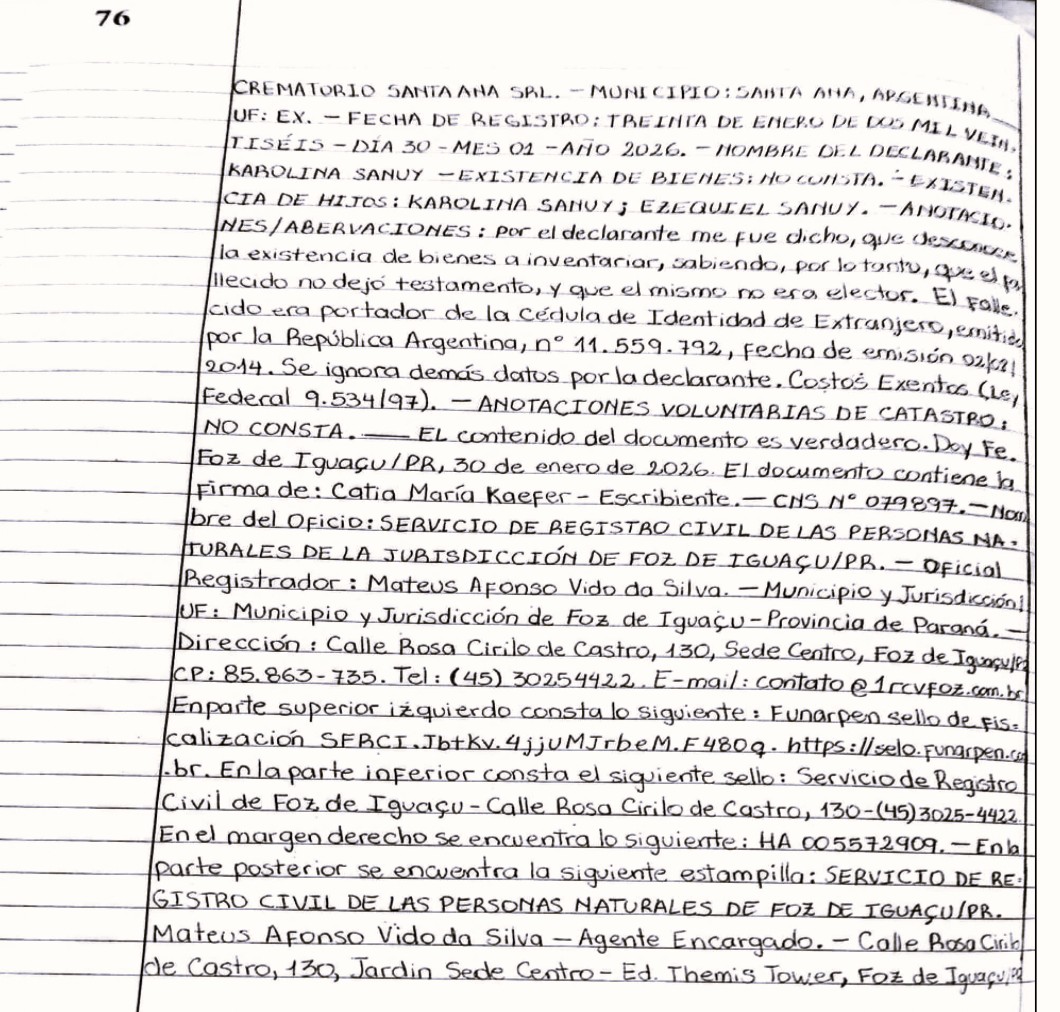 76
CREMATORIO SANTA ANA SRL. - MUNICIPIO: SANTA ANA, ARGENTINA
UF: EX. - FECHA DE REGISTRO: TREINTA DE ENERO DE DOS MIL VEIN-
TISÉIS - DÍA 30 - MES 01 - AÑO 2026. - NOMBRE DEL DECLARANTE:
KAROLINA SANUY - EXISTENCIA DE BIENES: NO CONSTA. - EXISTEN-
CIA DE HIJOS: KAROLINA SANUY; EZEQUIEL SANUY. - ANOTACIO-
NES/ABERVACIONES: por el declarante me fue dicho, que desconoce
la existencia de bienes a inventariar, sabiendo, por lo tanto, que el fa
llecido no dejó testamento, y que el mismo no era elector. El Falle-
cido era portador de la Cédula de Identidad de Extranjero, emitida
por la República Argentina, n° 11.559.792, fecha de emisión
2014. Se ignora demás datos por la declarante. Costos Exentos (Ley
Federal 9.534/97). - ANOTACIONES VOLUNTARIAS DE CATASTRO:
NO CONSTA. — EL contenido del documento es verdadero. Doy Fe.
Foz de Iguaçu/PR, 30 de enero de 2026. El documento contiene la
Firma de: Catia María Kaefer - Escribiente. - CNS N° 079897. - Nom
bre del Oficio: SERVICIO DE REGISTRO CIVIL DE LAS PERSONAS NA-
TURALES DE LA JURISDICCIÓN DE FOZ DE IGUAÇU/PR. - Oficial
Registrador: Mateus Afonso Vido da Silva. - Municipio y Jurisdicción/
UF: Municipio y Jurisdicción de Foz de Iguaçu - Provincia de Paraná. -
Dirección: Calle Rosa Cirilo de Castro, 130, Sede Centro, Foz de Iguaçu/PR
CP: 85.863-735. Tel: (45) 30254422. E-mail: contato@1rcvfoz.com.br
En parte superior izquierdo consta lo siguiente: Funarpen sello de Fis-
calización SFRCI.JbtKv.4jjUMJrbeM.F480q. https://selo.funarpen.co
.br. En la parte inferior consta el siguiente sello: Servicio de Registro
Civil de Foz de Iguaçu - Calle Rosa Cirilo de Castro, 130 - (45) 3025-4422
En el margen derecho se encuentra lo siguiente: HA 005572909. - En la
parte posterior se encuentra la siguiente estampilla: SERVICIO DE RE-
GISTRO CIVIL DE LAS PERSONAS NATURALES DE FOZ DE IGUAÇU/PR.
Mateus Afonso Vido da Silva - Agente Encargado. - Calle Rosa Cirilo
de Castro, 130, Jardin Sede Centro - Ed. Themis Tower, Foz de Iguaçu/PR